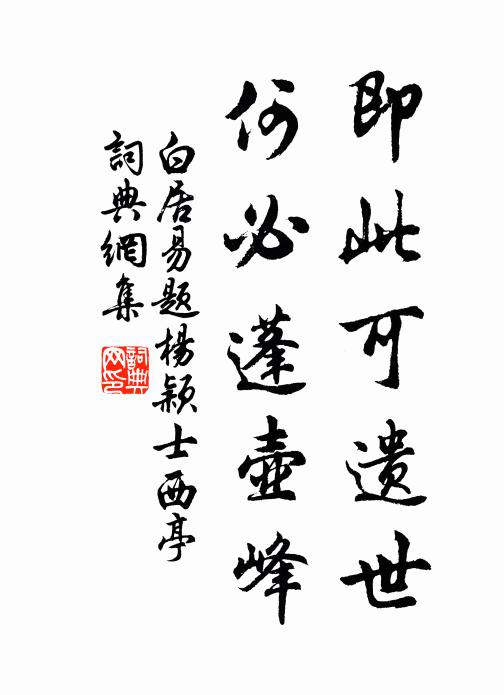 即此可遗世
何必蓬壺峰
白居易题楊颍士西亭
詞典網集
詞典网印